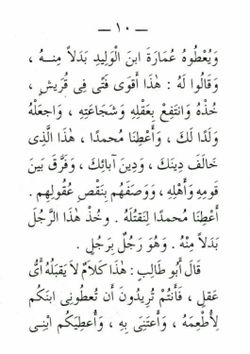 — ١٠ —
وَيُعْطُوهُ عُمَارَةَ ابنَ الْوَلِيدِ بَدَلاً مِنــهُ ،
وَقَالُوا لَهُ : هٰذَا أَقوَى فَتًى فِى قُرَيشٍ ،
خُذْهُ وَانتَفِعْ بِعَقْلِهِ وَشَجَاعَتِهِ ، وَاجعَلْهُ
وَلَدًا لَكَ ، وَأَعْطِنَا مُحمدًا ، هٰذَا الَّذِى
خَالَفَ دِينَكَ ، وَدِينَ آبائِكَ ، وَفَرَّقَ بَينَ
قَومِهِ وَأَهْلِهِ ، وَوَصَفَهُم بِنَقْصِ عُقُولِهِم .
أَعْطِنَا مُحمدًا لِنَقتُلَهُ . وخُذْ هٰذَا الرَّجُلَ
بَدَلاً مِنْهُ . وَهُوَ رَجُلٌ بِرَجُلٍ .
قَالَ أَبُو طَالِبٍ : هٰذَا كَلَامٌ لَا يَقبَلُهُ أَىُّ
عَقلٍ ، فَأَنتُمْ تُرِيدُونَ أَن تُعطُونِى ابنَكُم
لِأُطْعِمَهُ ، وَأَعتَنِىَ بِهِ ، وَأُعطِيَكُم ابْنِـى